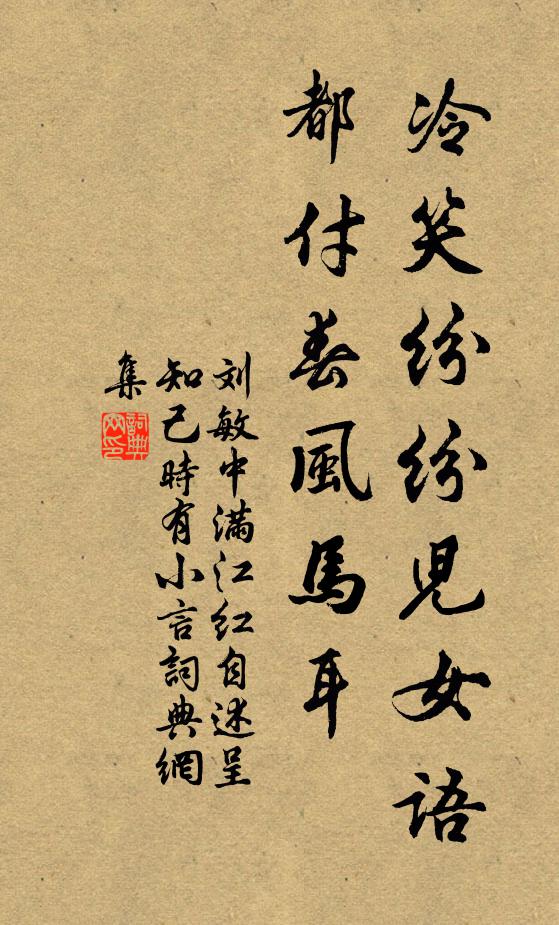 冷笑紛紛児女語
都付春風馬耳
刘敏中满江红自述呈
知己時有小言詞典網
集
詞典網印